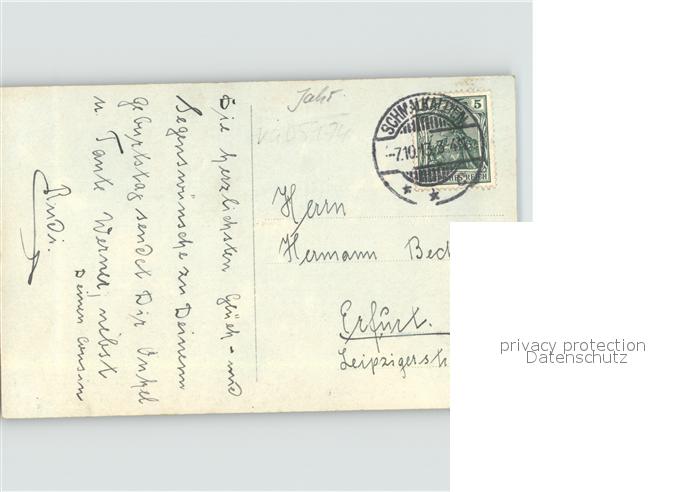 Die herzlichsten Glück- und
Segenswünsche zu Deinem
Geburtstag sendet Dir Onkel
u Tante Werner, nebst
Deinen Cousin
Rudi.
Jahr.
SCHMALKALDEN
-7.10.13.
5
Herrn
Hermann Bec
Erfurt.
Leipzigerst
privacy protection
Datenschutz